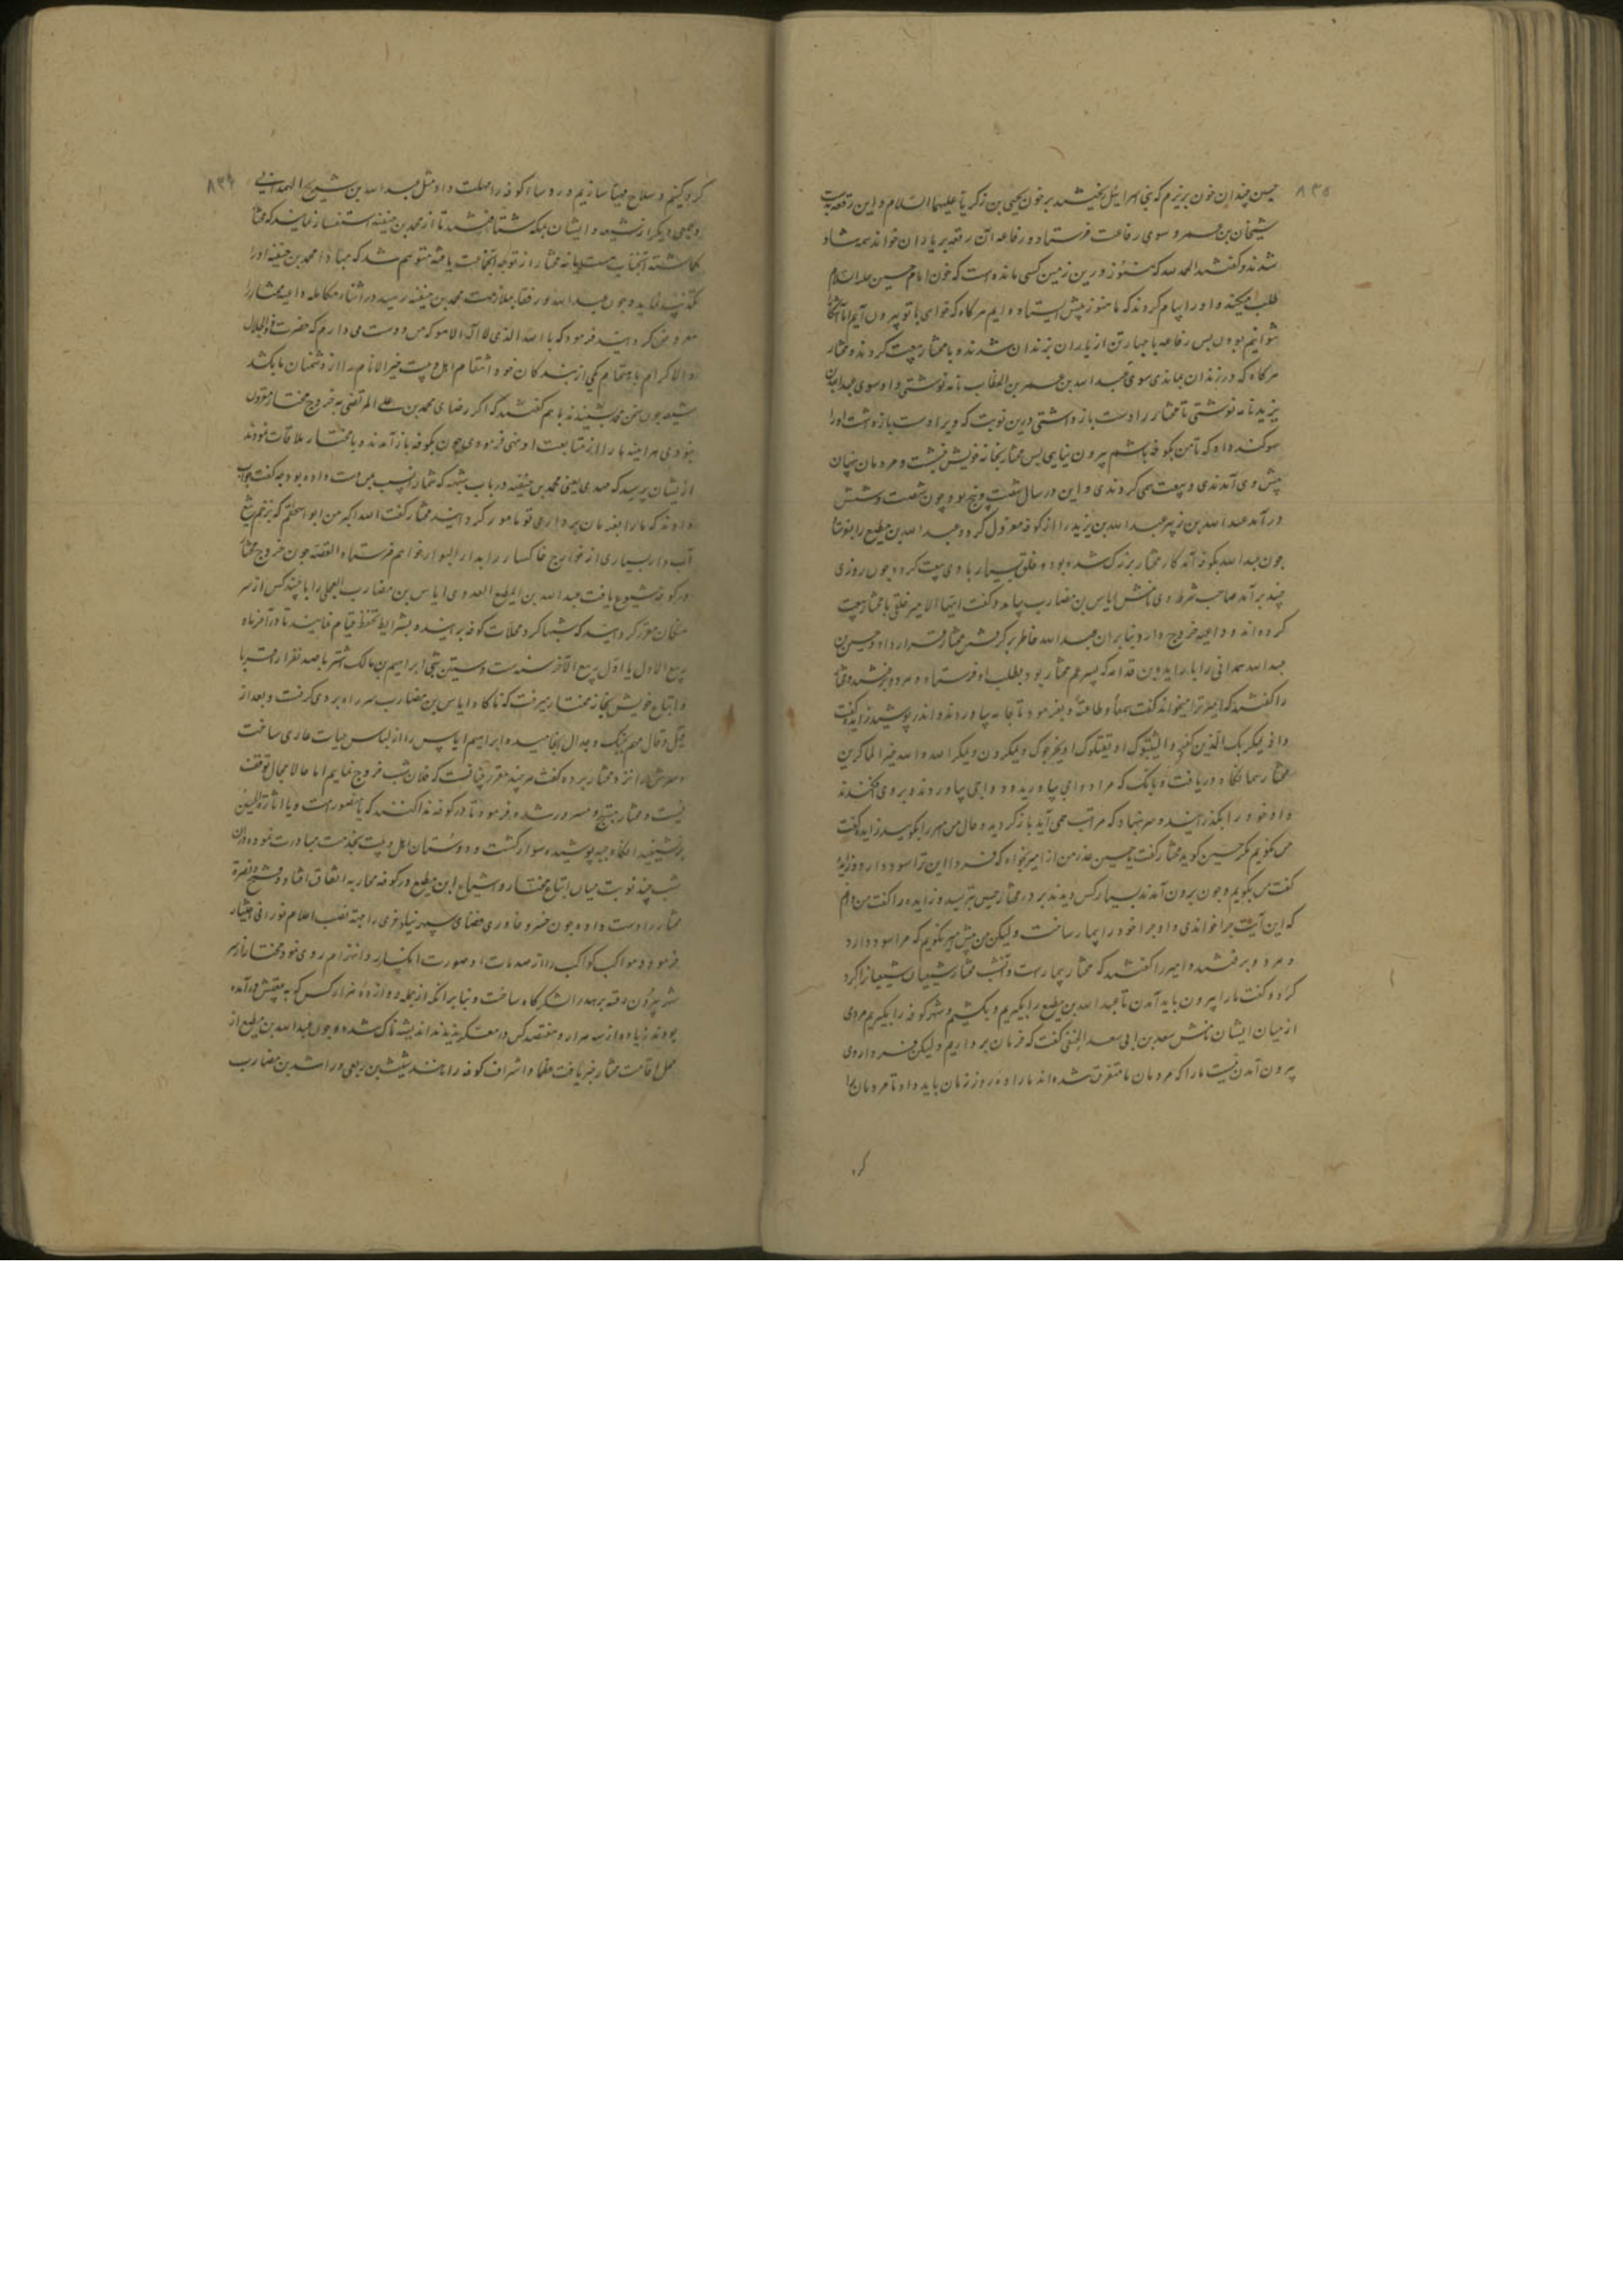 ۸۳۵
حسین چندان خون بریزم که بنی اسرائیل بریختند بر خون یحیی بن زکریا علیهما السلام و این رقعه بدست
بن عمرو سوی رفاعه فرستاد و رفاعه آن رقعه بر یاران خواند همه شاد
شدند و گفتند الحمد لله که هنوز درین زمین کسی مانده است که خون امام حسین علیه السلام
طلب میکند و او را پیام کردند که ما هنوز پیش ایستاده ایم هر کاه که خواهی با تو بیرون آیم اما آشکارا
نتوانیم بودن پس رفاعه با چهار تن از یاران بزندان شدند و با مختار بیعت کردند و مختار
هر کاه که در زندان بماندی سوی عبد الله بن عمر بن الخطاب نامه نوشتی و او سوی عبد الله بن
یزید نامه نوشتی تا مختار را دست باز داشتی درین نوبت که ویرا دست بازداشت او را
سوکند داد که تا من بکوفه باشم بیرون نیایی پس مختار بخانه خویش بنشست و مردمان پنهان
پیش وی آمدندی و بیعت همی کردندی و این در سال شصت و پنج بود و چون شصت و شش
در آمد عبد الله بن زبیر عبد الله بن یزید را از کوفه معزول کرد و عبد الله بن مطیع را بفرستاد
چون عبد الله بکوفه آمد کار مختار بزرک شده بود و خلق بسیار با وی بیعت کرد و چون روزی
چند بر آمد صاحب شرطه وی نامش ایاس بن مضارب بیامد و گفت ایها الامیر خلقی با مختار بیعت
کرده اند و داعیه خروج دارد بنابران عبد الله خاطر بر گرفتن مختار قرار داد و حسین بن
عبد الله همدانی را با زایده بن قدامه که پسر عم مختار بود بطلب او فرستاد هر دو برفتند و مختار
را گفتند که امیر ترا میخواند گفت سمعا و طاعة و بفرمود تا جامه بیاوردند و اندر پوشید زایده گفت
و اذ یمکر بک الذین کفروا لیثبتوک او یقتلوک او یخرجوک و یمکرون و یمکر الله و الله خیر الماکرین
مختار همانگاه دریافت و بانک کرد که مرا دواجی بیاورید و دواجی بیاوردند و بر وی افکندند
و او خود را بلرزانید و سر بنهاد که مرا تب همی آید بازگردید و حال من میر را بگویید زایده گفت
من نگویم مگر حسین گوید مختار گفت یا حسین عذر من از امیر بخواه که فردا این ترا سود دارد
گفت من بگویم و چون برون آمدند بسیار کس دیدند بر در مختار حسین بترسید و زایده را گفت من دانم
که این آیت چرا خواندی و او چرا خود را بیمار ساخت و لیکن من پیش میر نگویم که مرا سود دارد
و هر دو برفتند و امیر را گفتند که مختار بیمار است و آنشب مختار شیعیان را گرد
کرد و گفت ما را بیرون باید آمدن تا عبد الله بن مطیع را بگیریم و بکشیم و شهر کوفه را بگیریم مردی
از میان ایشان نامش سعد بن ابی سعد الحنفی گفت که فرمان بر داریم و لیکن فردا روی
بیرون آمدن نیست ما را که مردمان ما متفرق شده اند ما را ده روز زمان باید داد تا مردمان را
کرد
۸۳۶
گرد کنیم و سلاح مهیا سازیم و روساء کوفه را مهلت داد مثل عبد الله بن شریح الهمدانی
و جمعی دیگر از شیعه و ایشان بمکه شتافتند تا از محمد بن حنفیه استفسار نمایند که مختار
کماشته آنجناب هست یا نه مختار از توجه آنجماعت یافته متوهم شد که مبادا محمد بن حنفیه او را
تکذیب نماید و چون عبد الله و رفقا بملازمت محمد بن حنفیه رسید در اثناء مکالمه داعیه مختار را
معروض کردانید فرمود که بالله الذی لا اله الا هو که من دوست می دارم که حضرت ذو الجلال
و الاکرام بدست یکی از بندگان خود انتقام اهل بیت خیر الانام را از دشمنان ما بکشد
شیعه چون سخن محمد بشنیدند با هم گفتند که اگر رضای محمد بن علی المرتضی بخروج مختار مقرون
نبودی هر آینه ما را از متابعت او نهی فرمودی چون بکوفه باز آمدند و با مختار ملاقات نمودند
از ایشان پرسید که مهدی یعنی محمد بن حنفیه در باب که شما را دست داده بود چه گفت جواب
دادند که ما را بفرمان برداری تو مامور گردانید مختار گفت الله اکبر من ابو اسحقم که بزخم تیغ
آب دار بسیاری از خوارج خاکسار را بدار البوار خواهم فرستاد القصه چون خروج مختار
در کوفه شیوع یافت عبد الله بن المطیع العدوی ایاس بن مضارب العجلی را با چند کس از سر
هنکان مقرر گردانید که شبها کرد محلات کوفه برآیند و بشرایط تحفظ قیام نمایند تا در آخر ماه
ربیع الاول یا اول ربیع الآخر سنه ست و ستین شبی ابراهیم بن مالک اشتر با صد نفر از اقربا
و اتباع خویش بخانه مختار میرفت که ناکاه ایاس بن مضارب سر راه بر وی گرفت و بعد از
قیل و قال مهم بجنک و جدال انجامیده ابراهیم ایاس را از لباس حیات عاری ساخت
و سرش را نزد مختار برده گفت هر چند مقرر چنانست که فلان شب خروج نمایم اما حالا مجال توقف
نیست و مختار مبتهج و مسرور شده فرمود تا در کوفه ندا کنند که یا منصور امت و یا لثارات الحسین
آنکاه جبه پوشیده سوار گشت و دوستان اهل بیت بخدمت مبادرت نموده در آن
شب چند نوبت میان اتباع مختار و اشیاع ابن مطیع در کوفه محاربه اتفاق افتاد و فتح و نصرة
مختار را دست داد و چون خسرو خاوری فضای سپهر نیلوفری را جهة نصب اعلام نورانی اختیار
فرمود و مواکب کواکب را از صدمات او صورت انکسار و انهزام روی نمود مختار از
شهر بیرون رفته بر هند را لشکر کاه ساخت و بنابر آنکه از جمله دوازده هزار کس که به بیعتش درآمده
بودند زیاده از سه هزار و هفتصد کس در معسکر ندیدند اندیشه ناک شده و چون عبد الله بن مطیع از
محل اقامت مختار خبر یافت عظما و اشراف کوفه را مانند شبث بن ربعی و راشد بن مضارب